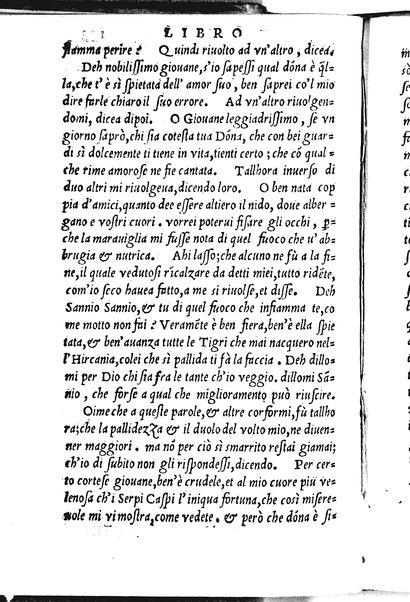 LIBRO
fiamma perire? Quindi riuolto ad vn'altro, dicea.
Deh nobilissimo giouane, s'io sapessi qual dóna è q̃l=
la, che t'è sì spietata dell'amor suo, ben saprei co'l mio
dire farle chiaro il suo errore. Ad vn'altro riuolgen=
domi, dicea dipoi. O Giouane leggiadrissimo, se vn
giorno saprò, chi sia cotesta tua Dóna, che con bei guar=
di sì dolcemente ti tiene in vita, tienti certo; che có qual=
che rime amorose ne fie cantata. Tallhora inuerso di
duo altri mi riuolgeua, dicendo loro. O ben nata cop
pia d'amici, quanto dee essere altiero il nido, doue alber=
gano e vostri cuori. vorrei poterui fisare gli occhi, p=
che la marauiglia mi fusse nota di quel fuoco che u'ab=
brugia & nutrica. Ahi lasso; che alcuno ne fù a la fi=
ne, il quale vedutosi ricalzare da detti miei, tutto ridẽte,
com'io seco hauea fatto, a me si riuolse, et disse. Deh
Sannio Sannio, & tu di quel fuoco che infiamma te, co
me motto non fai? Veramẽte è ben fiera, ben'è ella spie
tata, & ben'auanza tutte le Tigri che mai nacquero nel=
l'Hircania, colei che sì pallida ti fà la faccia. Deh dillo=
mi per Dio chi sia fra le tante ch'io veggio. dillomi Sã=
nio, che forse a qual che miglioramento può riuscire.
Oime che a queste parole, & altre corformi, fù tallho
ra; che la pallidezza & il duolo del volto mio, ne diuen=
ner maggiori. ma nó per ciò sì smarrito restai giamai;
ch'io di subito non gli rispondessi, dicendo. Per cer=
to cortese giouane, ben'è crudele, et al mio cuore più ve=
lenosa ch'i Serpi Caspi l'iniqua fortuna, che così misere=
uole mi vi mostra, come vedete. & però che dóna è si=